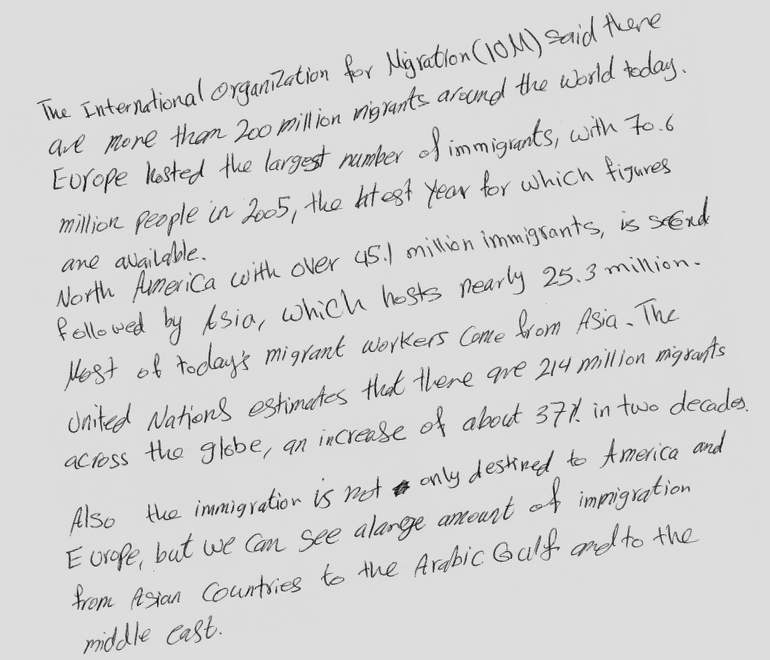 The International Organization for Migration (IOM) said there
are more than 200 million migrants around the world today.
Europe hosted the largest number of immigrants, with 70.6
million people in 2005, the latest year for which figures
are available.
North America with over 45.1 million immigrants, is second
followed by Asia, which hosts nearly 25.3 million.
Most of today's migrant workers come from Asia. The
United Nations estimates that there are 214 million migrants
across the globe, an increase of about 37% in two decades.
Also the immigration is not only destined to America and
Europe, but we can see alarge amount of immigration
from Asian Countries to the Arabic Gulf and to the
middle east.